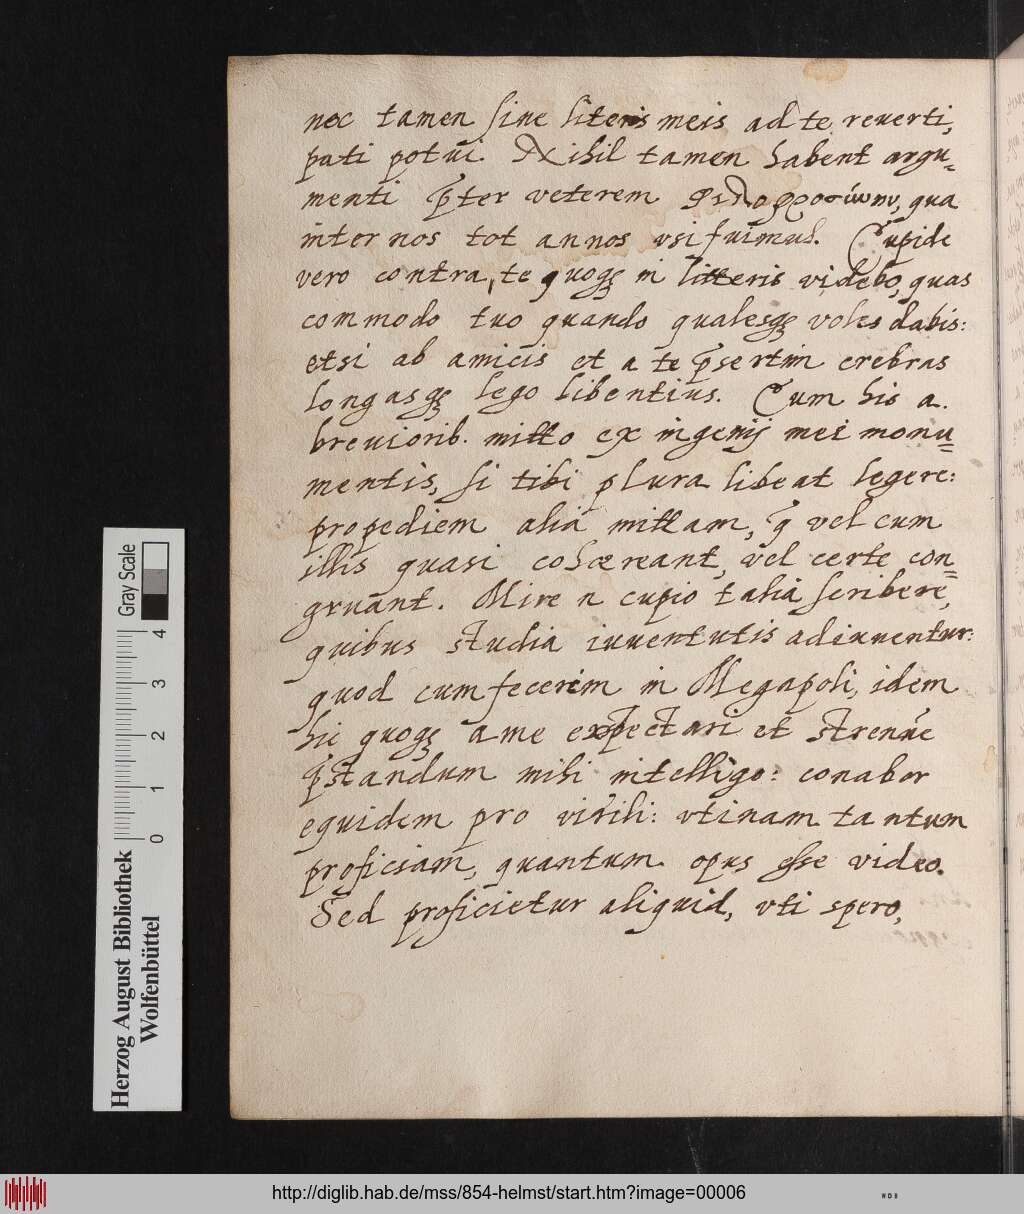 nec tamen sine literis meis ad te reuerti,
pati potui. Nihil tamen habent argu=
menti p̄ter veterem φιλοφροσύνην, qua
inter nos tot annos vsi fuimus. Cupide
vero contra, te quoqꝫ in litteris videbo, quas
commodo tuo quando qualesqꝫ voles dabis:
etsi ab amicis et a te p̄sertim crebras
longasqꝫ lego libentius. Cum his a.
breuiorib. mitto ex ingenij mei monu=
mentis, si tibi plura libeat legere:
propediem alia mittam, q̄ vel cum
illis quasi cohæreant, vel certe con=
gruant. Mire n cupio talia scribere,
quibus studia iuuentutis adiuuentur:
quod cum fecerim in Megapoli, idem
hic quoqꝫ a me expectari et strenue
p̄standum mihi intelligo: conabor
equidem pro virili: vtinam tantum
proficiam, quantum opus esse video.
Sed proficietur aliquid, vti spero,
Gray Scale
0 1 2 3 4
Herzog August Bibliothek
Wolfenbüttel
http://diglib.hab.de/mss/854-helmst/start.htm?image=00006
WDB